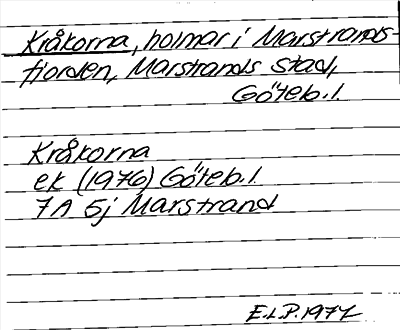 Kråkorna, holmar i Marstrands-
fjorden, Marstrands stad,
Göteb. l.
Kråkorna
ek (1976) Göteb. l.
7A 5j Marstrand
E.L.P. 1977